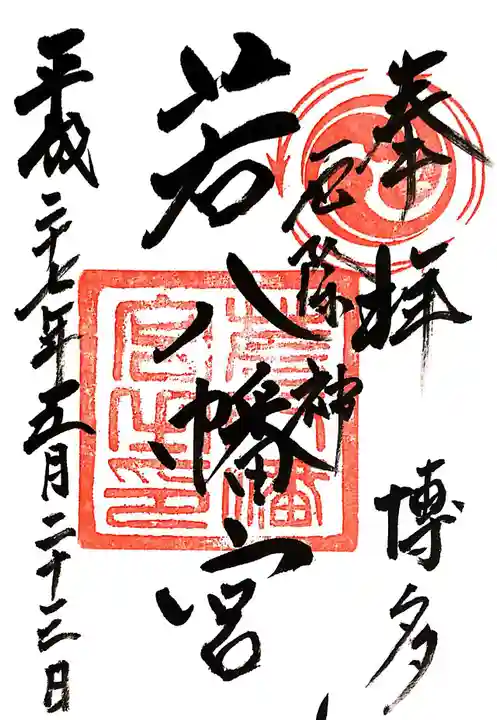 奉拝
博多
厄除神
若八幡宮
平成二十七年五月二十三日